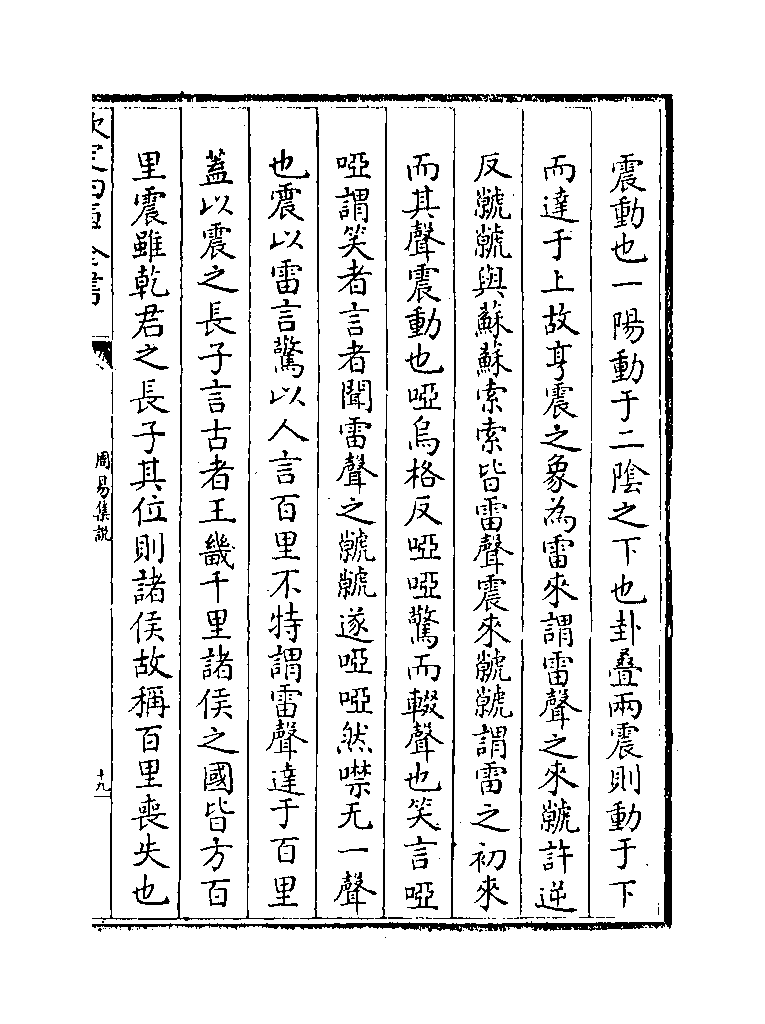 震動也一陽動于二陰之下也卦疊兩震則動于下
而達于上故亨震之象為雷來謂雷聲之來虩許逆
反虩虩與蘇蘇索索皆雷聲震來虩虩謂雷之初來
而其聲震動也啞烏格反啞啞驚而輟聲也笑言啞
啞謂笑者言者聞雷聲之虩虩遂啞啞然噤无一聲
也震以雷言驚以人言百里不特謂雷聲達于百里
蓋以震之長子言古者王畿千里諸侯之國皆方百
里震雖乾君之長子其位則諸侯故稱百里喪失也
欽定四庫全書
周易集說
十九